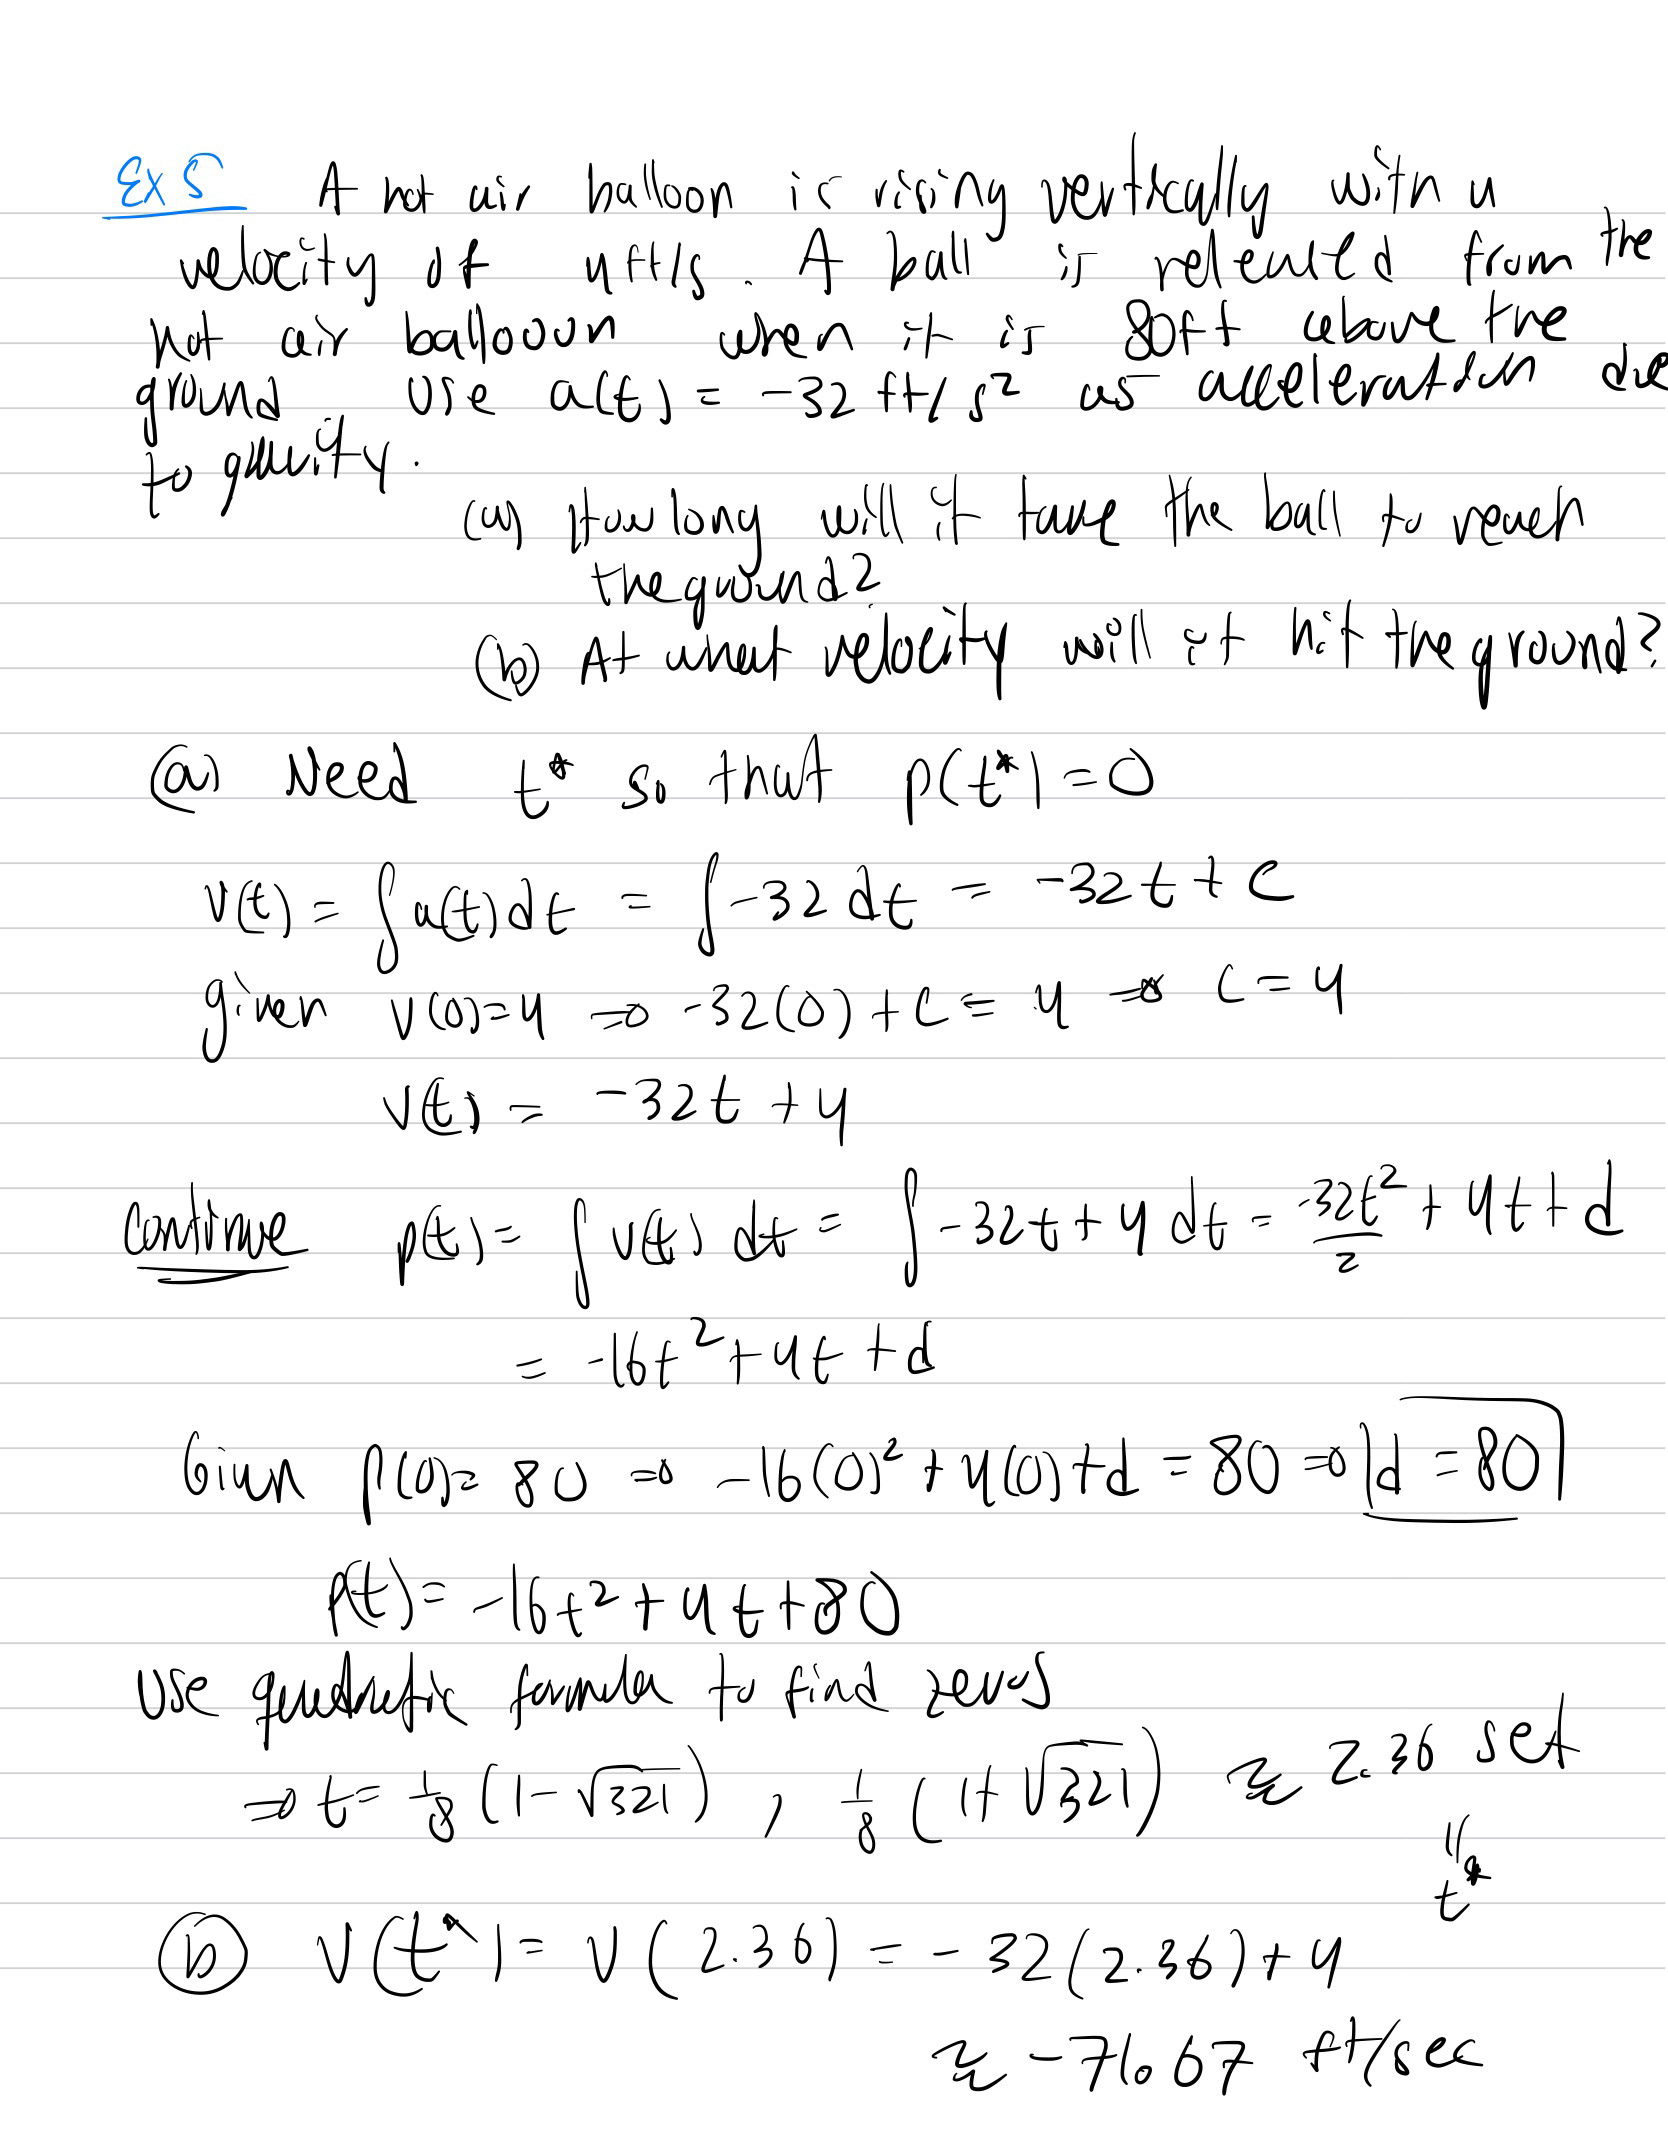 Ex 5 A hot air balloon is rising vertically with a
velocity of 4 ft/s. A ball is released from the
hot air ballooon when it is 80ft above the
ground. Use a(t) = -32 ft/s² as acceleration due
to gravity.
(a) How long will it take the ball to reach
the ground?
(b) At what velocity will it hit the ground?
(a) Need t* so that p(t*) = 0
v(t) = ∫a(t)dt = ∫-32 dt = -32t + C
given v(0)=4 ⇒ -32(0)+C = 4 ⇒ C = 4
v(t) = -32t + 4
continue p(t) = ∫v(t) dt = ∫-32t+4 dt = -32t²/2 + 4t + d
= -16t² + 4t + d
Given p(0)= 80 ⇒ -16(0)² + 4(0)+d = 80 ⇒ d = 80
p(t) = -16t² + 4t + 80
Use quadratic formula to find zeros
⇒ t = 1/8 (1-√321) , 1/8 (1+√321) ≈ 2.36 sec
||
t*
(b) v(t*) = v(2.36) = -32(2.36)+4
≈ -71.67 ft/sec